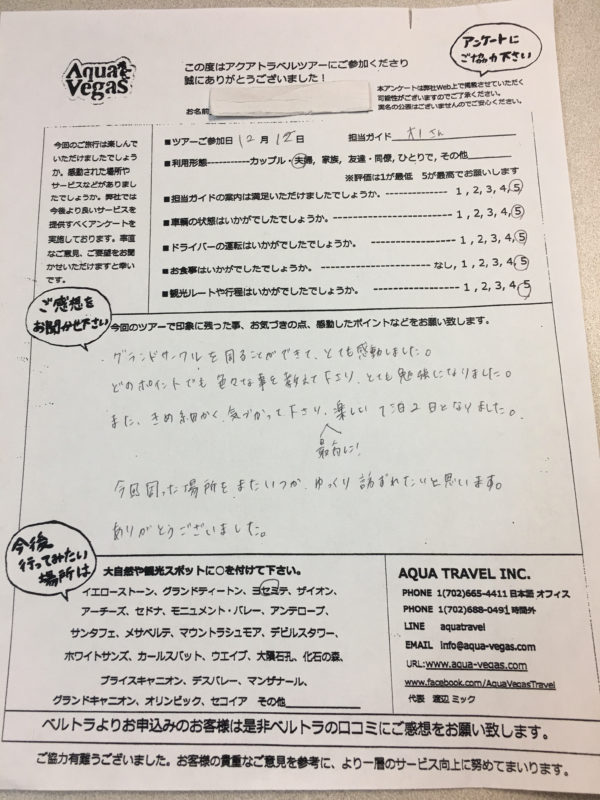 Aqua Vegas
この度はアクアトラベルツアーにご参加くださり
誠にありがとうございました！
アンケートに
ご協力下さい
お名前
本アンケートは弊社Web上で掲載させていただく
可能性がございますのでご了承ください。
実名の公表はございませんのでご安心ください。
今回のご旅行は楽しんで
いただけましたでしょう
か。感動された場所や
サービスなどがありまし
たでしょうか。弊社では
今後より良いサービスを
提供すべくアンケートを
実施しております。率直
なご意見、ご要望をお聞
かせいただけますと幸い
です。
■ツアーご参加日 12月 12日 担当ガイド さん
■利用形態-----------カップル・夫婦, 家族, 友達・同僚, ひとりで, その他
※評価は1が最低 5が最高でお願いします
■担当ガイドの案内は満足いただけましたでしょうか。--------------- 1, 2, 3, 4, 5
■車輌の状態はいかがでしたでしょうか。------------------------ 1, 2, 3, 4, 5
■ドライバーの運転はいかがでしたでしょうか。----------------- 1, 2, 3, 4, 5
■お食事はいかがでしたでしょうか。-------------------- なし, 1, 2, 3, 4, 5
■観光ルートや行程はいかがでしたでしょうか。----------------- 1, 2, 3, 4, 5
ご感想を
お聞かせ下さい
今回のツアーで印象に残った事、お気づきの点、感動したポイントなどをお願い致します。
グランドサークルを回ることができて、とても感動しました。
どのポイントでも色々な事を教えて下さり、とても勉強になりました。
また、きめ細かく気づかって下さり、楽しい1泊2日となりました。
最高に!
今回回った場所を、またいつか、ゆっくり訪ずれたいと思います。
ありがとうございました。
今後
行ってみたい
場所は
大自然や観光スポットに○を付けて下さい。
イエローストーン、グランドティートン、ヨセミテ、ザイオン、
アーチーズ、セドナ、モニュメント・バレー、アンテロープ、
サンタフェ、メサベルテ、マウントラシュモア、デビルスタワー、
ホワイトサンズ、カールスバット、ウエイブ、大隕石孔、化石の森、
ブライスキャニオン、デスバレー、マンザナール、
グランドキャニオン、オリンピック、セコイア その他
AQUA TRAVEL INC.
PHONE 1(702)665-4411 日本語 オフィス
PHONE 1(702)688-0491 時間外
LINE aquatravel
EMAIL info@aqua-vegas.com
URL:www.aqua-vegas.com
www.facebook.com/AquaVegasTravel
代表 渡辺 ミック
ベルトラよりお申込みのお客様は是非ベルトラの口コミにご感想をお願い致します。
ご協力有難うございました。お客様の貴重なご意見を参考に、より一層のサービス向上に努めてまいります。